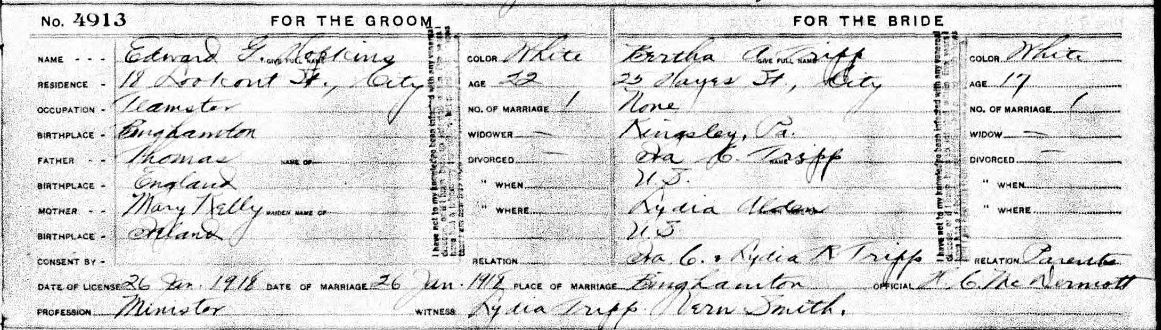 No. 4913 FOR THE GROOM FOR THE BRIDE
NAME - - - Edward G. Hopkins GIVE FULL NAME COLOR White Bertha A. Tripp GIVE FULL NAME COLOR White
RESIDENCE - 18 Lookout St., City AGE 22 25 Hayes St., City AGE 17
OCCUPATION - Teamster NO. OF MARRIAGE 1 None NO. OF MARRIAGE 1
BIRTHPLACE - Binghamton WIDOWER — Kingsley, Pa. WIDOW —
FATHER - - Thomas NAME OF DIVORCED — Ira C. Tripp NAME OF DIVORCED —
BIRTHPLACE - England " WHEN U.S. " WHEN
MOTHER - - Mary Kelly MAIDEN NAME OF " WHERE Lydia Alden " WHERE
BIRTHPLACE - Ireland U.S.
CONSENT BY - RELATION Ira C. & Lydia R Tripp RELATION Parents
DATE OF LICENSE 26 Jan. 1918 DATE OF MARRIAGE 26 Jan. 1918 PLACE OF MARRIAGE Binghamton OFFICIAL H. C. McDermott
PROFESSION Minister WITNESS Lydia Tripp Vern Smith.